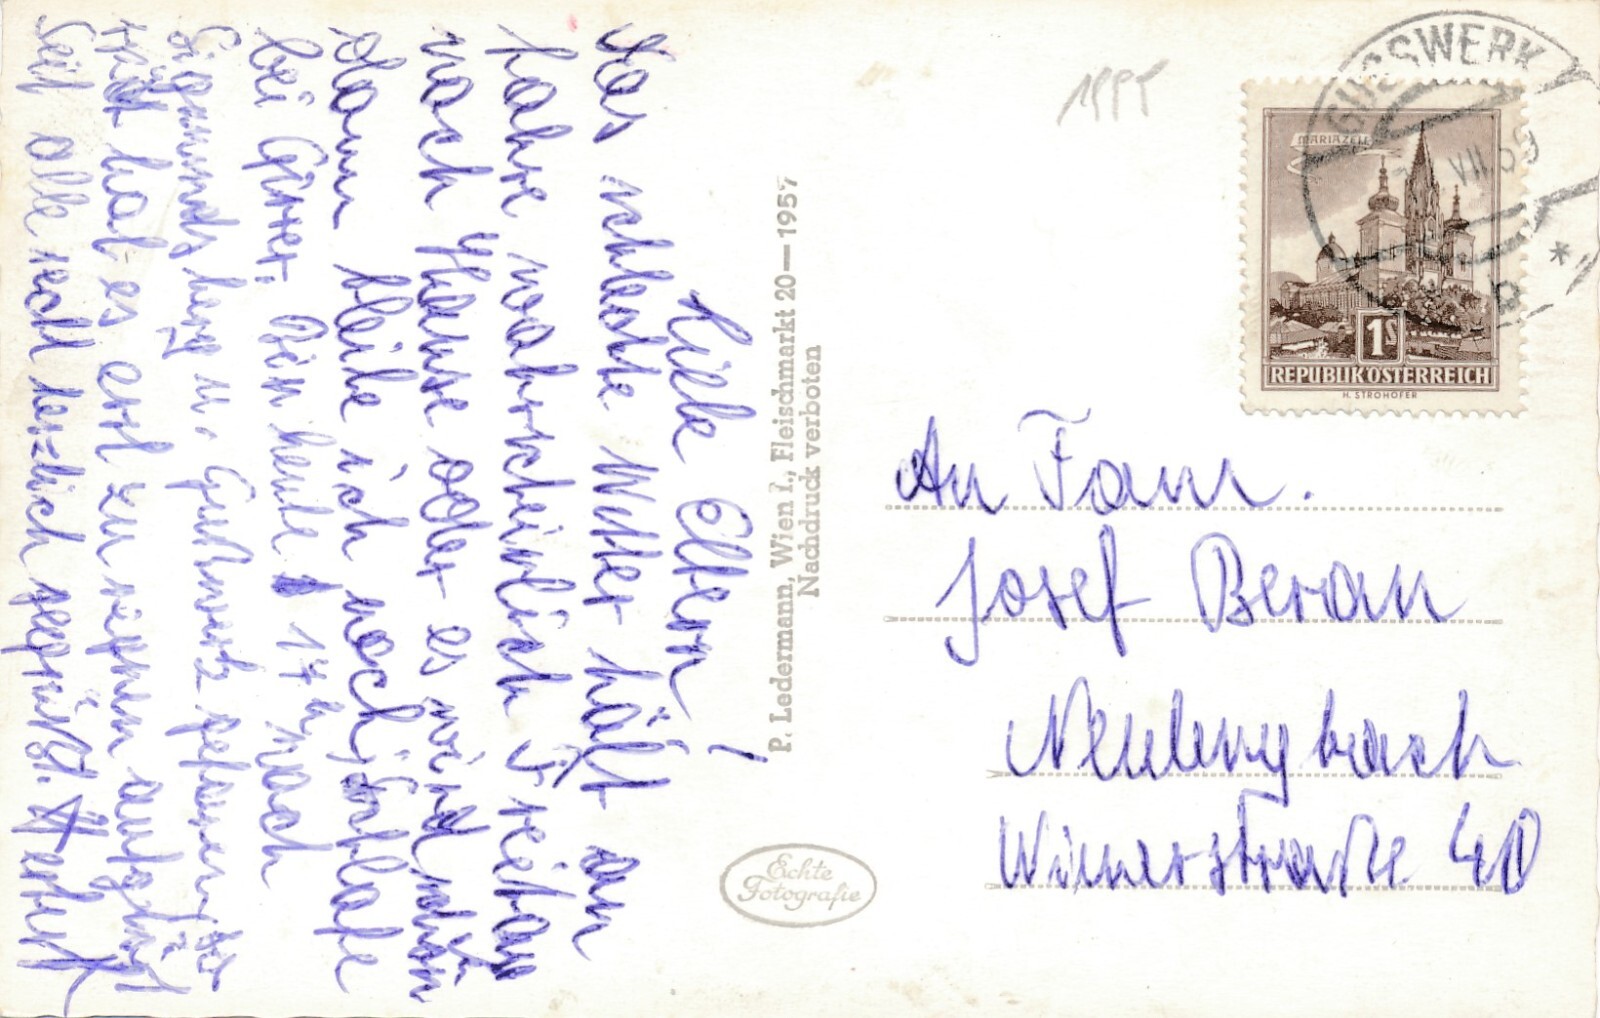 Liebe Eltern!
Das schlechte Wetter hält an
fahre wahrscheinlich Freitag
nach Hause oder es wird schön
dann bleibe ich noch, schlafe
bei Gürer. Bin heute 17h nach
Sigmundsberg u. Gußwerk gefahren, der
hat es erst zu regnen aufgehört
Seit alle recht herzlich gegrüßt. Herbert
P. Ledermann, Wien I., Fleischmarkt 20—1957
Nachdruck verboten
Echte
Fotografie
1PPT
GUSSWERK
VII 59
b
MARIAZELL
1S
REPUBLIK ÖSTERREICH
H. STROHOFER
An Fam.
Josef Beran
Neulengbach
Wienerstraße 40